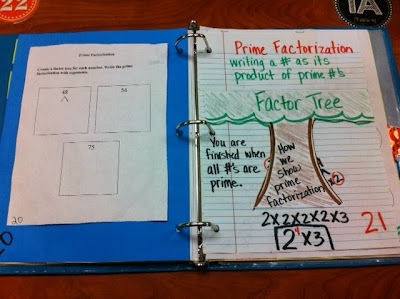 22
1A
Prime Factorization
Create a factor tree for each number. Write the prime
factorization with exponents.
48
54
75
20
20
Prime Factorization
writing a # as its
product of prime #'s
Factor Tree
You are
finished when
all #'s are
prime.
How
we
show
prime
factorization
2x2x2x2x3
2⁴x3
21